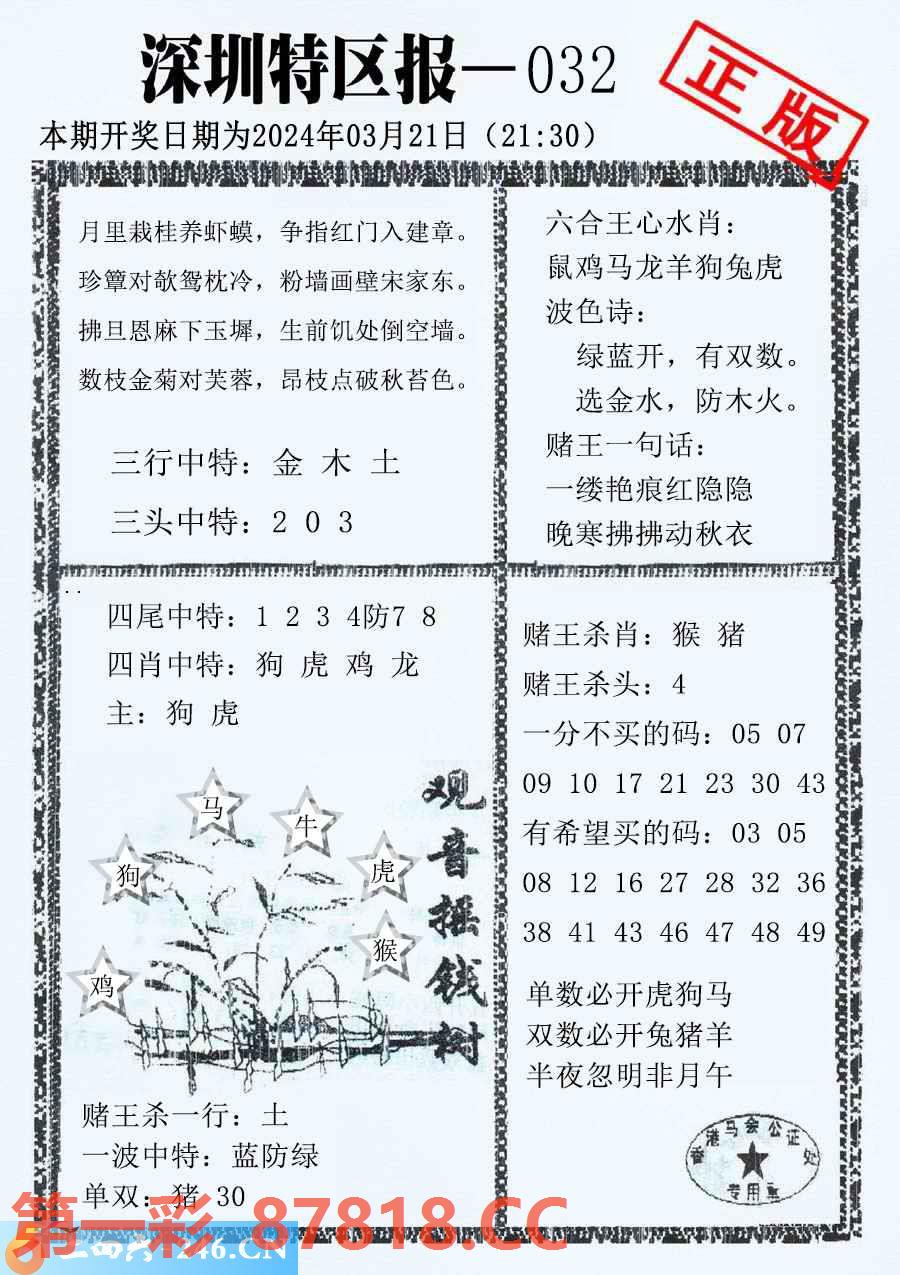 深圳特区报—032
正版
本期开奖日期为2024年03月21日（21:30）
月里栽桂养虾蟆，争指红门入建章。
珍簟对欹鸳枕冷，粉墙画壁宋家东。
拂旦恩麻下玉墀，生前饥处倒空墙。
数枝金菊对芙蓉，昂枝点破秋苔色。
三行中特：金 木 土
三头中特：2 0 3
六合王心水肖：
鼠鸡马龙羊狗兔虎
波色诗：
绿蓝开，有双数。
选金水，防木火。
赌王一句话：
一缕艳痕红隐隐
晚寒拂拂动秋衣
四尾中特：1 2 3 4防7 8
四肖中特：狗 虎 鸡 龙
主：狗 虎
马
牛
狗
虎
猴
鸡
观音摇钱树
赌王杀一行：土
一波中特：蓝防绿
单双：猪 30
赌王杀肖：猴 猪
赌王杀头：4
一分不买的码：05 07
09 10 17 21 23 30 43
有希望买的码：03 05
08 12 16 27 28 32 36
38 41 43 46 47 48 49
单数必开虎狗马
双数必开兔猪羊
半夜忽明非月午
香港马会公证处
专用章
第一彩 87818.CC
246.CN